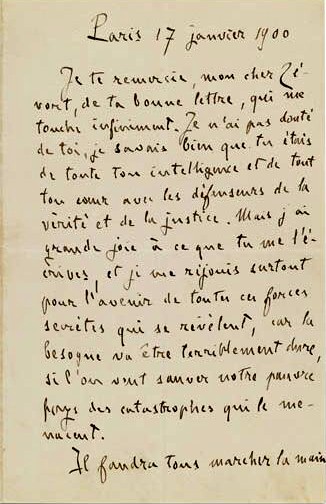 Paris 17 janvier 1900
Je te remercie, mon cher Zé-
vort, de ta bonne lettre, qui me
touche infiniment. Je n'ai pas douté
de toi, je savais bien que tu étais
de toute ton intelligence et de tout
ton cœur avec les défenseurs de la
vérité et de la justice. Mais j'ai
grande joie à ce que tu me l'é-
crives, et je me réjouis surtout
pour l'avenir de toutes ces forces
secrètes qui se révèlent, car la
besogne va être terriblement dure,
si l'on veut sauver notre pauvre
pays des catastrophes qui le me-
nacent.
Il faudra tous marcher la main